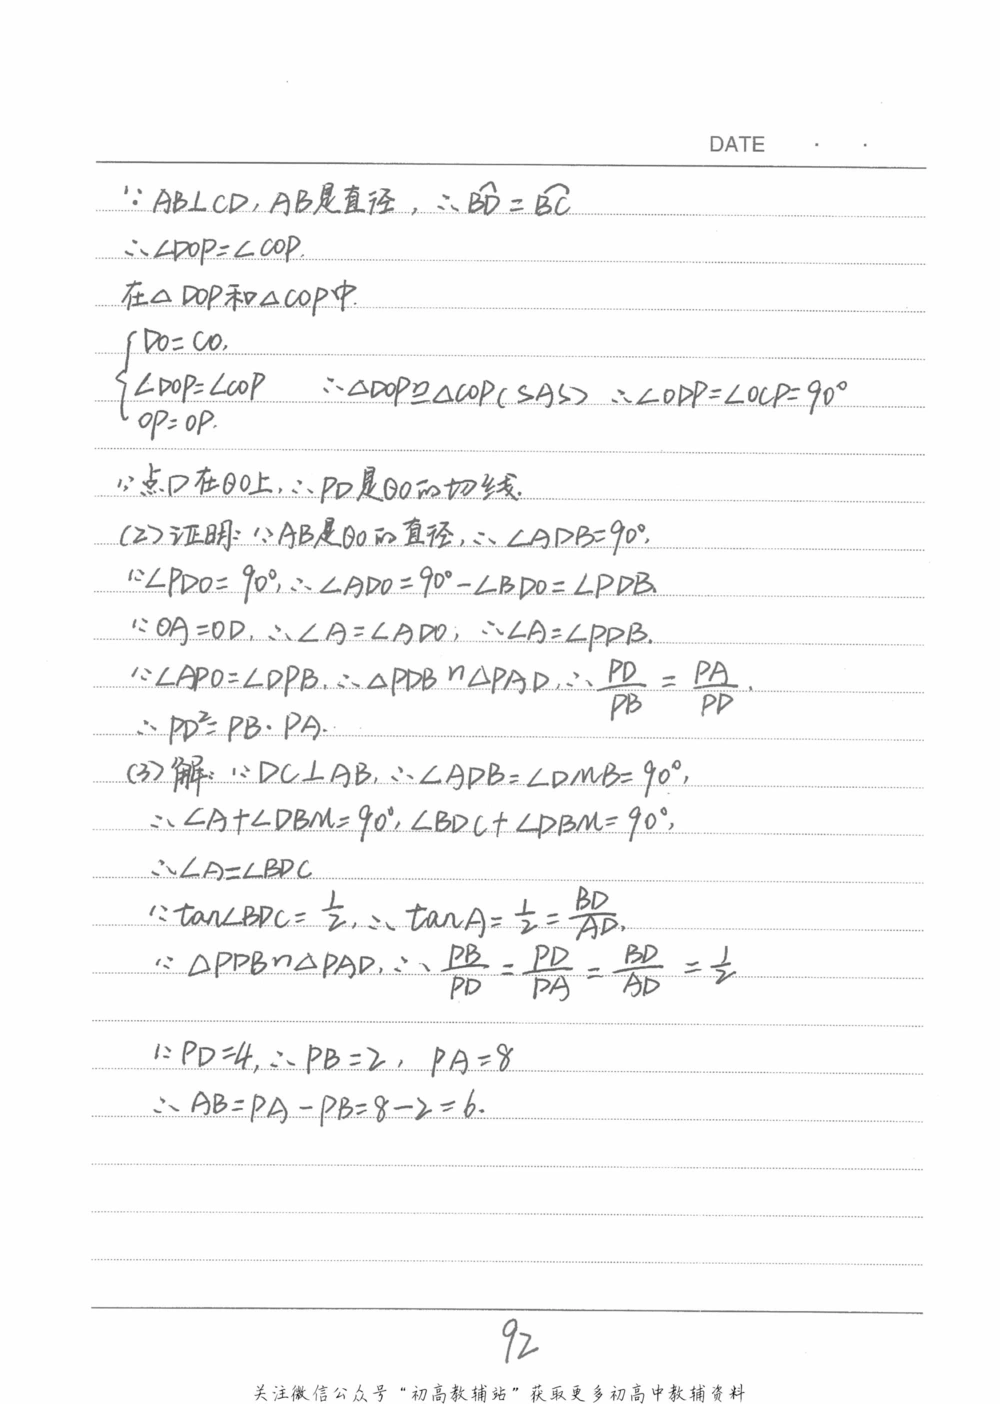 DATE · ·
∵ AB⊥CD, AB是直径, ∴ BD⌢ = BC⌢
∴∠DOP=∠COP.
在△DOP和△COP中.
{ DO=CO,
∠DOP=∠COP ∴△DOP≌△COP(SAS) ∴∠ODP=∠OCP=90°
OP=OP.
∵点D在⊙O上,∴PD是⊙O的切线.
(2)证明:∵AB是⊙O的直径,∴∠ADB=90°,
∵∠PDO=90°,∴∠ADO=90°-∠BDO=∠PDB.
∵OA=OD,∴∠A=∠ADO, ∴∠A=∠PDB.
∵∠APO=∠DPB,∴△PDB∽△PAD,∴ PD/PB = PA/PD.
∴PD²=PB·PA.
(3)解:∵DC⊥AB,∴∠ADB=∠DMB=90°,
∴∠A+∠DBM=90°,∠BDC+∠DBM=90°,
∴∠A=∠BDC
∵tan∠BDC=1/2,∴tanA=1/2=BD/AD,
∵△PDB∽△PAD,∴ PB/PD = PD/PA = BD/AD = 1/2
∵PD=4,∴PB=2, PA=8
∴AB=PA-PB=8-2=6.
92
关注微信公众号“初高教辅站”获取更多初高中教辅资料